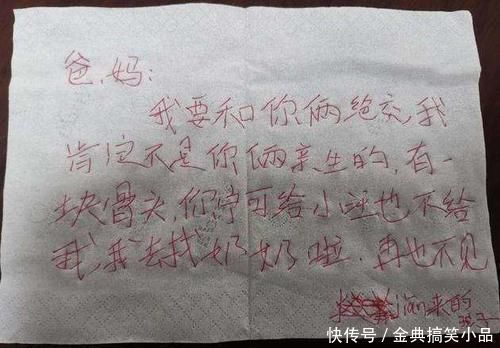 爸、妈:
我要和你俩绝交,我
肯定不是你俩亲生的,有一
块骨头,你宁可给小旺也不给
我,我去找奶奶啦,再也不见
捡来的
孩子
快传号/金典搞笑小品